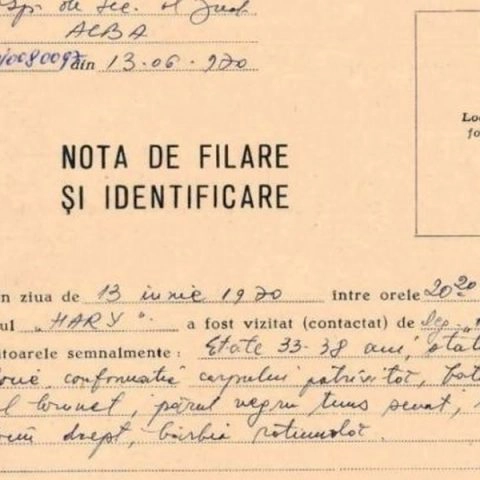 de Sec. al Jud.
ALBA
/0080097 din 13.06.970
NOTA DE FILARE
ŞI IDENTIFICARE
Loc
fo
n ziua de 13 iunie 1970 între orele 20²⁰
ul „HARY". a fost vizitat (contactat) de leg.
itoarele semnalmente: Etate 33-38 ani, stat
conformatia corpului potrivită, fata
brunet, părul negru tuns scurt,
drept, bărbia rotundă.